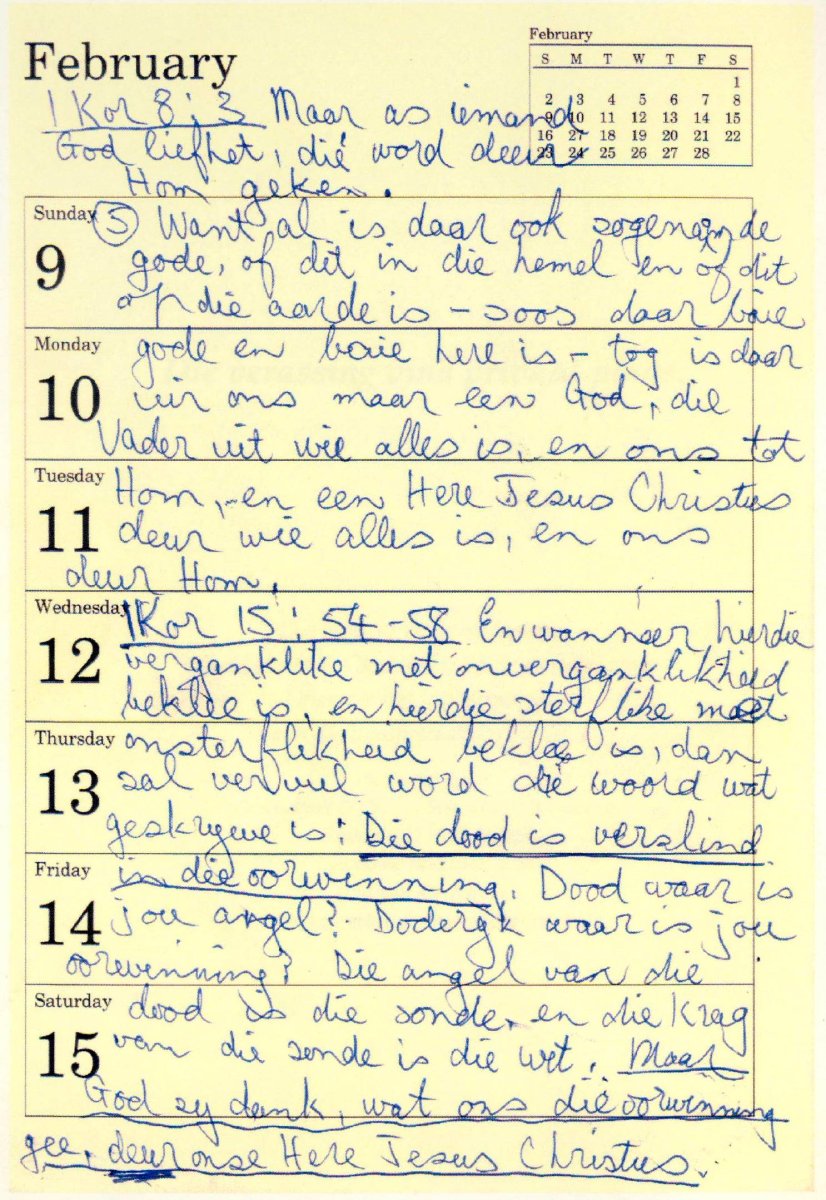 February
February
S M T W T F S
1
2 3 4 5 6 7 8
9 10 11 12 13 14 15
16 17 18 19 20 21 22
23 24 25 26 27 28
1 Kor 8 : 3 Maar as iemand
God liefhet, dié word deur
Hom geken.
Sunday
9
(5) Want al is daar ook sogenaamde
gode, of dit in die hemel en of dit
op die aarde is – soos daar baie
Monday
10
gode en baie here is – tog is daar
vir ons maar een God, die
Vader uit wie alles is, en ons tot
Tuesday
11
Hom, en een Here Jesus Christus
deur wie alles is, en ons
deur Hom.
Wednesday
12
1 Kor 15 : 54 - 58 En wanneer hierdie
verganklike met onverganklikheid
beklee is, en hierdie sterflike met
Thursday
13
onsterflikheid beklee is, dan
sal vervul word die woord wat
geskrywe is: Die dood is verslind
Friday
14
in die oorwinning. Dood waar is
jou angel? Doderyk waar is jou
oorwinning? Die angel van die
Saturday
15
dood is die sonde, en die krag
van die sonde is die wet. Maar
God sy dank, wat ons die oorwinning
gee, deur onse Here Jesus Christus.